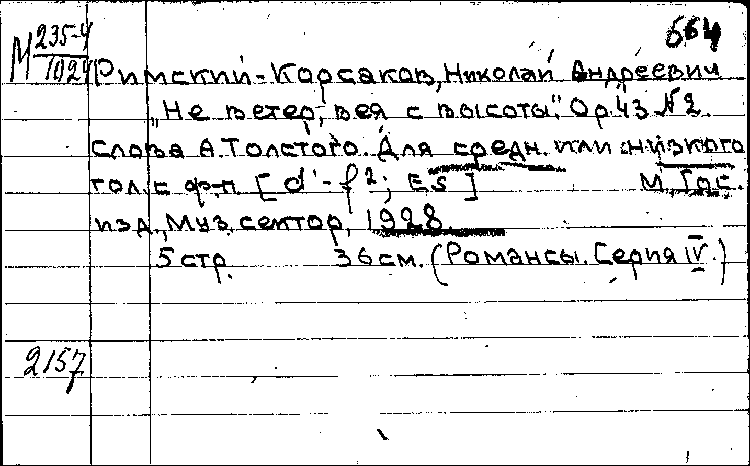 664
М 235-4
1024
Римский-Корсаков, Николай Андреевич
"Не ветер, вея с высоты." Op. 43 №2.
слова А. Толстого. Для средн. или низкого
гол. с ф-п. [d'-f²; Es] М. Гос.
изд., Муз. сектор, 1928
5 стр. 36 см. (Романсы. Серия IV.)
2157